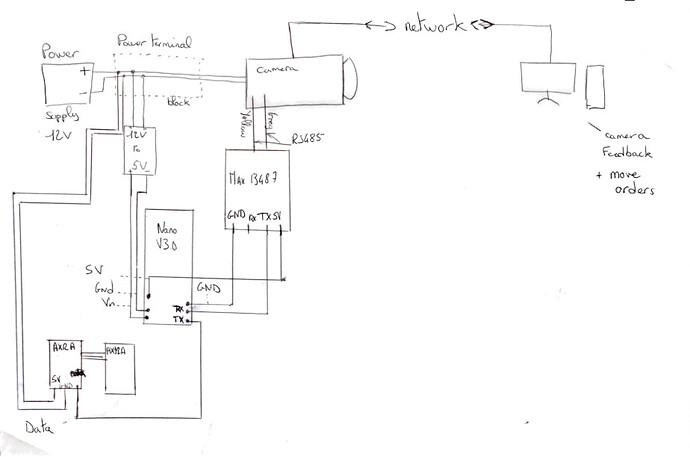 network
Power terminal
Power
+
-
Supply
12V
block
camera
Yellow
Grey
RS485
camera
Feedback
+ move
orders
12V
To
5V
Max 13487
GND RX TX 5V
Nano
V3.0
5V
Gnd
Vin
GND
RX
TX
AX12A
5V
GND
Data